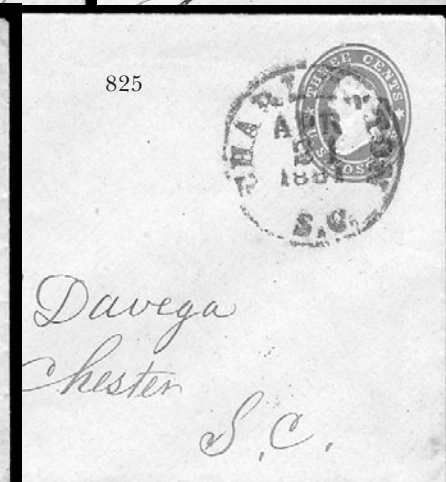 825
THREE CENTS
CHARLESTON
APR
1861
S.C.
Davega
Chester
S.C.